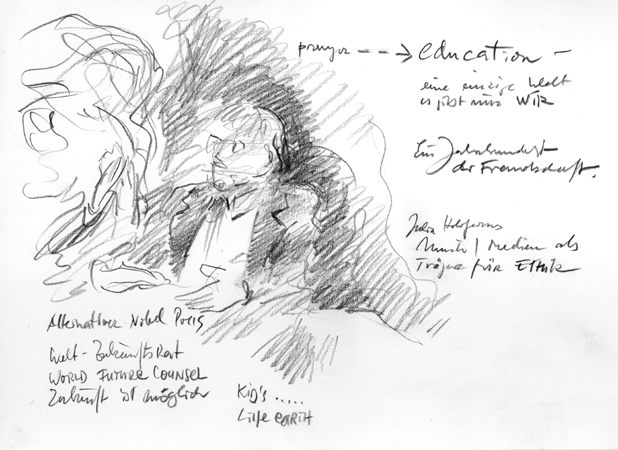 prayer - - -> education -
eine einzige Welt
es gibt nur WIR
Ein Jahrhundert
der Freundschaft.
Medien als
Träger für Ethik
Alternativer Nobel Preis
Welt - Zukunftsrat
WORLD FUTURE COUNSEL
Zukunft ist möglich
KID'S .....
EARTH